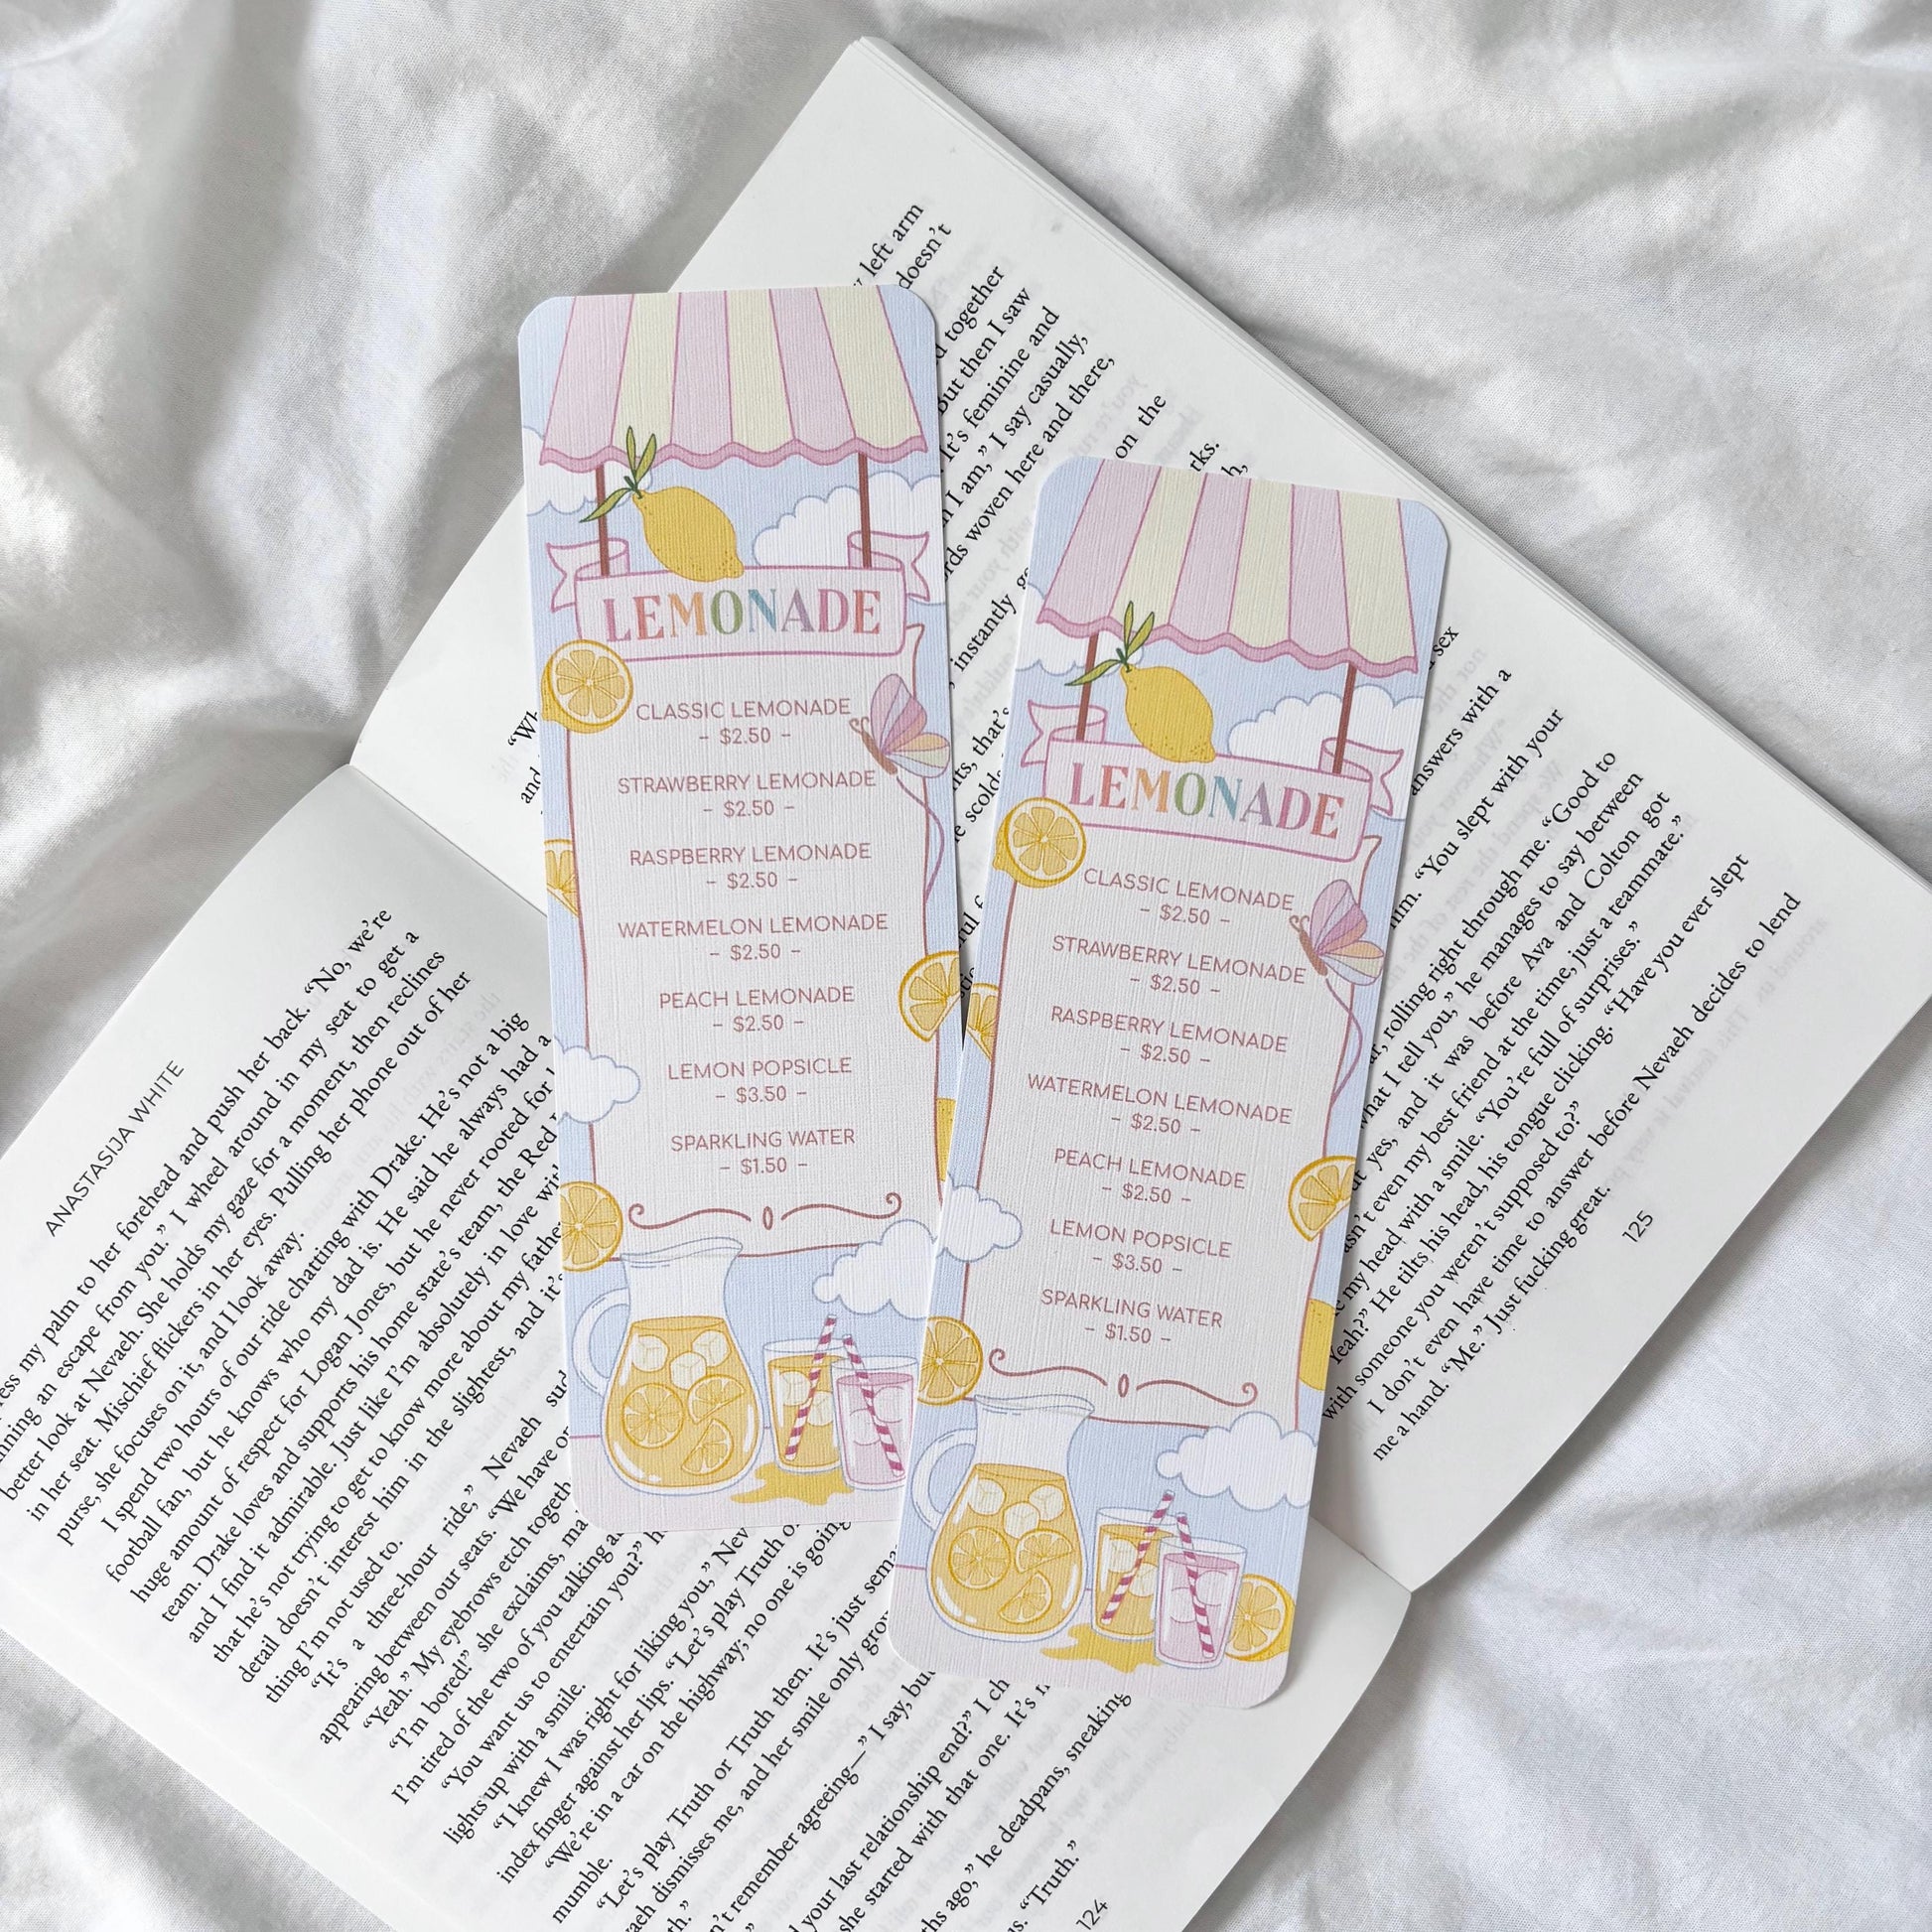 LEMONADE
CLASSIC LEMONADE
- $2.50 -
STRAWBERRY LEMONADE
- $2.50 -
RASPBERRY LEMONADE
- $2.50 -
WATERMELON LEMONADE
- $2.50 -
PEACH LEMONADE
- $2.50 -
LEMON POPSICLE
- $3.50 -
SPARKLING WATER
- $1.50 -
LEMONADE
CLASSIC LEMONADE
- $2.50 -
STRAWBERRY LEMONADE
- $2.50 -
RASPBERRY LEMONADE
- $2.50 -
WATERMELON LEMONADE
- $2.50 -
PEACH LEMONADE
- $2.50 -
LEMON POPSICLE
- $3.50 -
SPARKLING WATER
- $1.50 -
ANASTASIJA WHITE
my palm to her forehead and push her back. “No, we’re
an escape from you.” I wheel around in my seat to get a
better look at Nevaeh. She holds my gaze for a moment, then reclines
in her seat. Mischief flickers in her eyes. Pulling her phone out of her
purse, she focuses on it, and I look away.
I spend two hours of our ride chatting with Drake. He’s not a big
football fan, but he knows who my dad is. He said he always had a
huge amount of respect for Logan Jones, but he never rooted for
team. Drake loves and supports his home state’s team, the Red
and I find it admirable. Just like I’m absolutely in love
that he’s not trying to get to know more about my father
detail doesn’t interest him in the slightest, and it’s
thing I’m not used to.
“It’s a three-hour ride,” Nevaeh
appearing between our seats. “We have
“Yeah.” My eyebrows etch
“I’m bored!” she exclaims,
I’m tired of the two of you talking
“You want us to entertain you?”
lights up with a smile.
“I knew I was right for liking you,”
index finger against her lips. “Let’s play Truth
“We’re in a car on the highway; no one is going
mumble.
“Let’s play Truth or Truth then. It’s just
dismisses me, and her smile only
remember agreeing—” I say,
your last relationship end?” I
she started with that one. It’s
ago,” he deadpans, sneaking
“Truth.”
124
left arm
doesn’t
together
But then I saw
It’s feminine and
I am,” I say casually,
woven here and there,
on the
instantly
that’s
sex
answers with a
“You slept with your
rolling right through me. “Good to
what I tell you,” he manages to say between
yes, and it was before Ava and Colton got
even my best friend at the time, just a teammate.”
my head with a smile. “You’re full of surprises.”
He tilts his head, his tongue clicking. “Have you ever slept
with someone you weren’t supposed to?”
I don’t even have time to answer before Nevaeh decides to lend
me a hand. “Me.” Just fucking great.
125